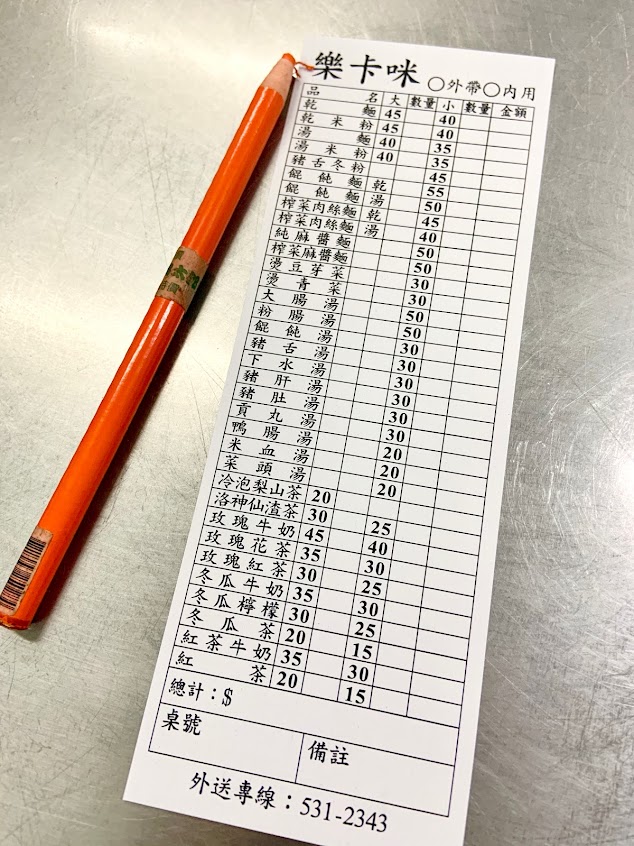 樂卡咪 ○外帶○內用
品名 大 數量 小 數量 金額
乾麵 45 40
乾米粉 45 40
湯麵 40 35
湯米粉 40 35
豬舌冬粉 45
餛飩麵乾 55
餛飩麵湯 50
榨菜肉絲麵乾 45
榨菜肉絲麵湯 40
純麻醬麵 50
榨菜麻醬麵 50
燙豆芽菜 30
燙青菜 30
大腸湯 50
粉腸湯 50
餛飩湯 30
豬舌湯 30
下水湯 30
豬肝湯 30
豬肚湯 30
貢丸湯 30
鴨腸湯 20
米血湯 20
菜頭湯 20
冷泡梨山茶 20
洛神仙渣茶 30 25
玫瑰牛奶 45 40
玫瑰花茶 35 30
玫瑰紅茶 30 25
冬瓜牛奶 35 30
冬瓜檸檬 30 25
冬瓜茶 20 15
紅茶牛奶 35 30
紅茶 20 15
總計：$
桌號 備註
外送專線：531-2343